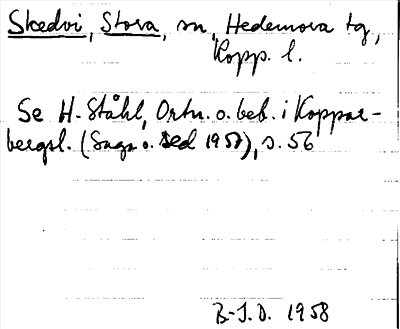 Skedvi, Stora, sn, Hedemora tg,
Kopp. l.
Se H. Ståhl, Ortn. o. beb. i Koppar-
bergsl. (Saga o. sed 1957), s. 56
B-I.D. 1958